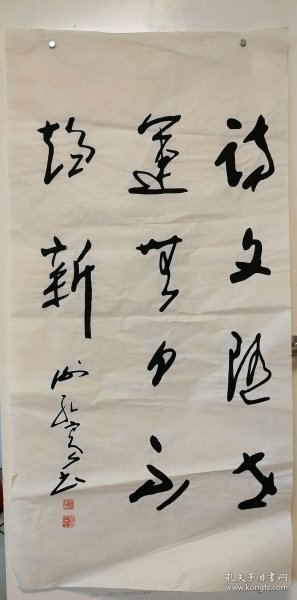 詩文隨世
運無日不
趨新
孔夫子旧书网